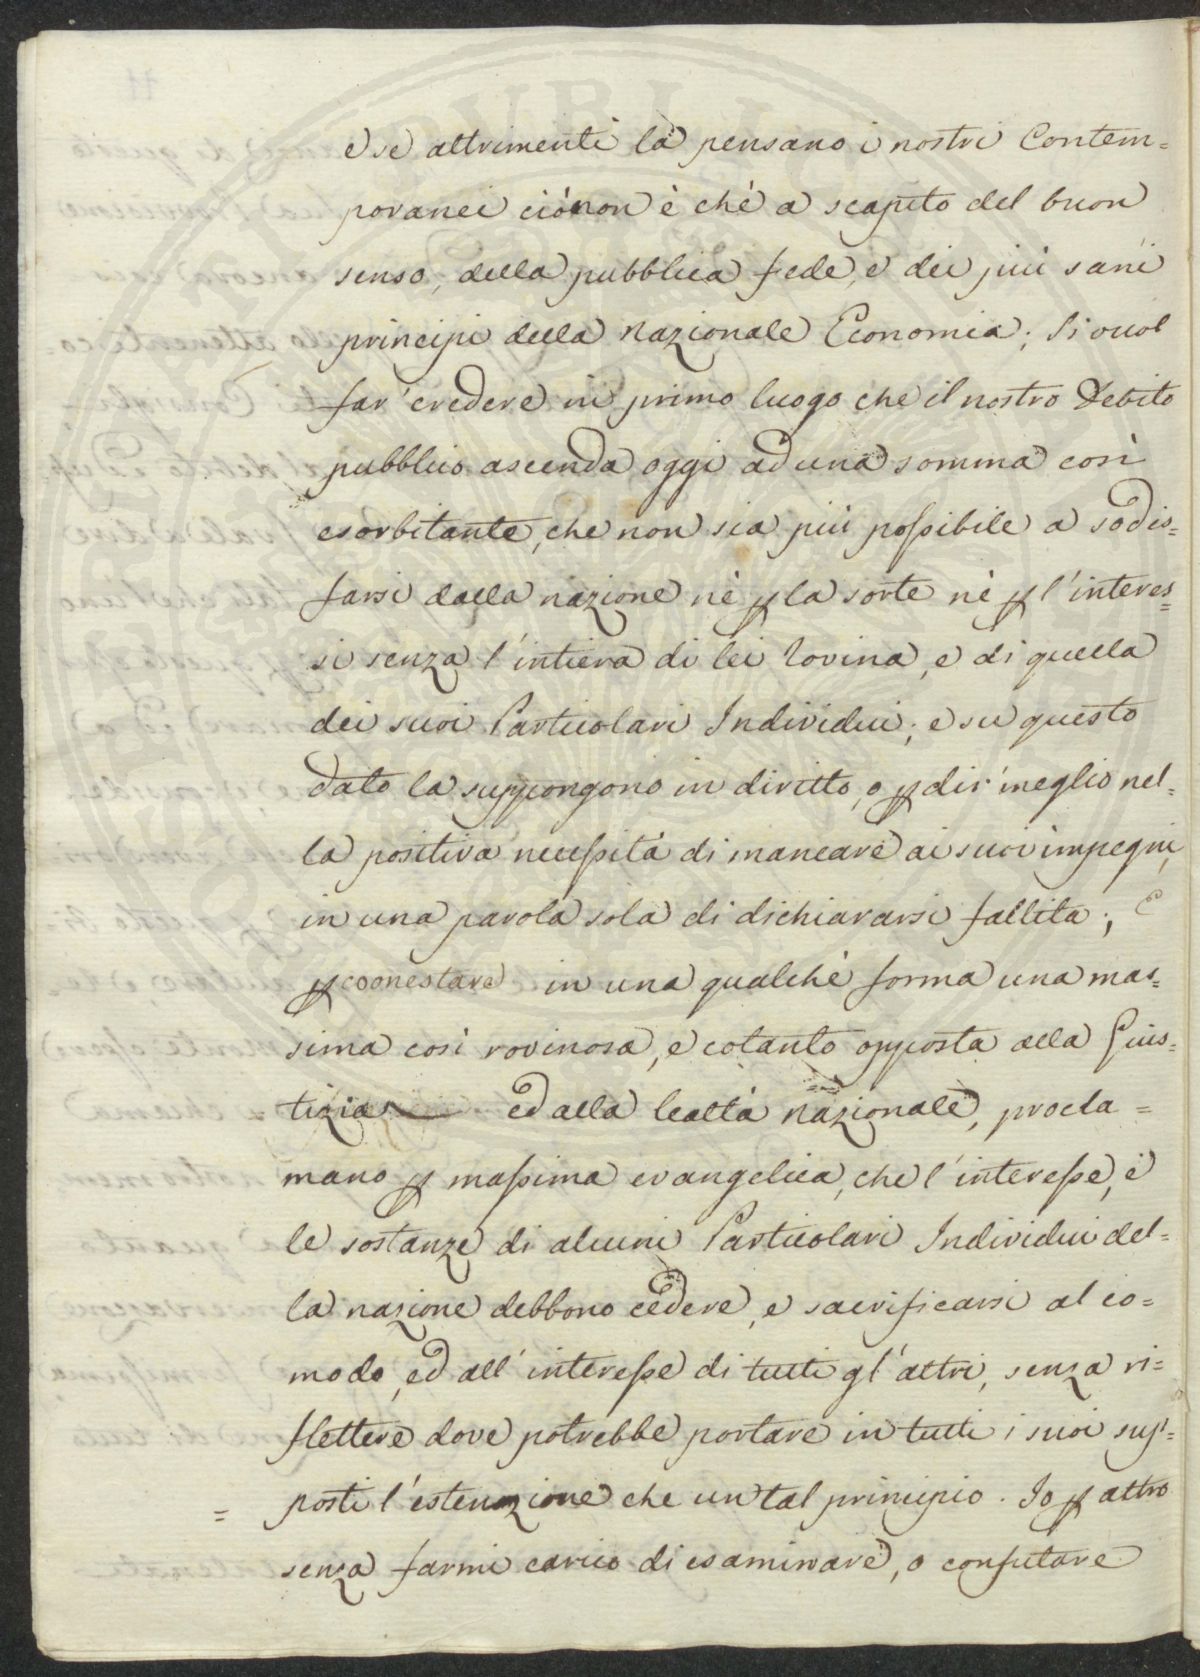 e se altrimenti la pensano i nostri Contem=
poranei ciò non è ché a scapito del buon
senso, della pubblica fede, e dei più sani
principi della Nazionale Economia; Si vuol
far' credere in primo luogo che il nostro Debito
pubblico ascenda oggi ad una somma così
esorbitante, che non sia più poſsibile a sodis=
farsi dalla nazione nè ꝑ la sorte nè ꝑ l'interes=
si senza l'intiera di lei Rovina, e di quella
dei suoi Particolari Individui; e su questo
dato la suppongono in diritto, o ꝑ dir' meglio nel=
la positiva neceſsità di mancare ai suoi impegni,
in una parola sola di dichiararsi fallita; E
ꝑ coonestare in una qualché forma una mas=
sima così rovinosa, e cotanto opposta alla Gius=
tizia ed alla lealtà nazionale, procla=
mano ꝑ maſsima evangelica, che l'intereſse, e
le sostanze di alcuni Particolari Individui del=
la nazione debbono cedere, e sacrificarsi al co=
modo, ed all'intereſse di tutti gl'altri, senza ri=
flettere dove potrebbe portare in tutti i suoi sup=
posti l'estenzione che un tal principio. Io ꝑ altro
=
senza farmi carico di esaminare, o confutare